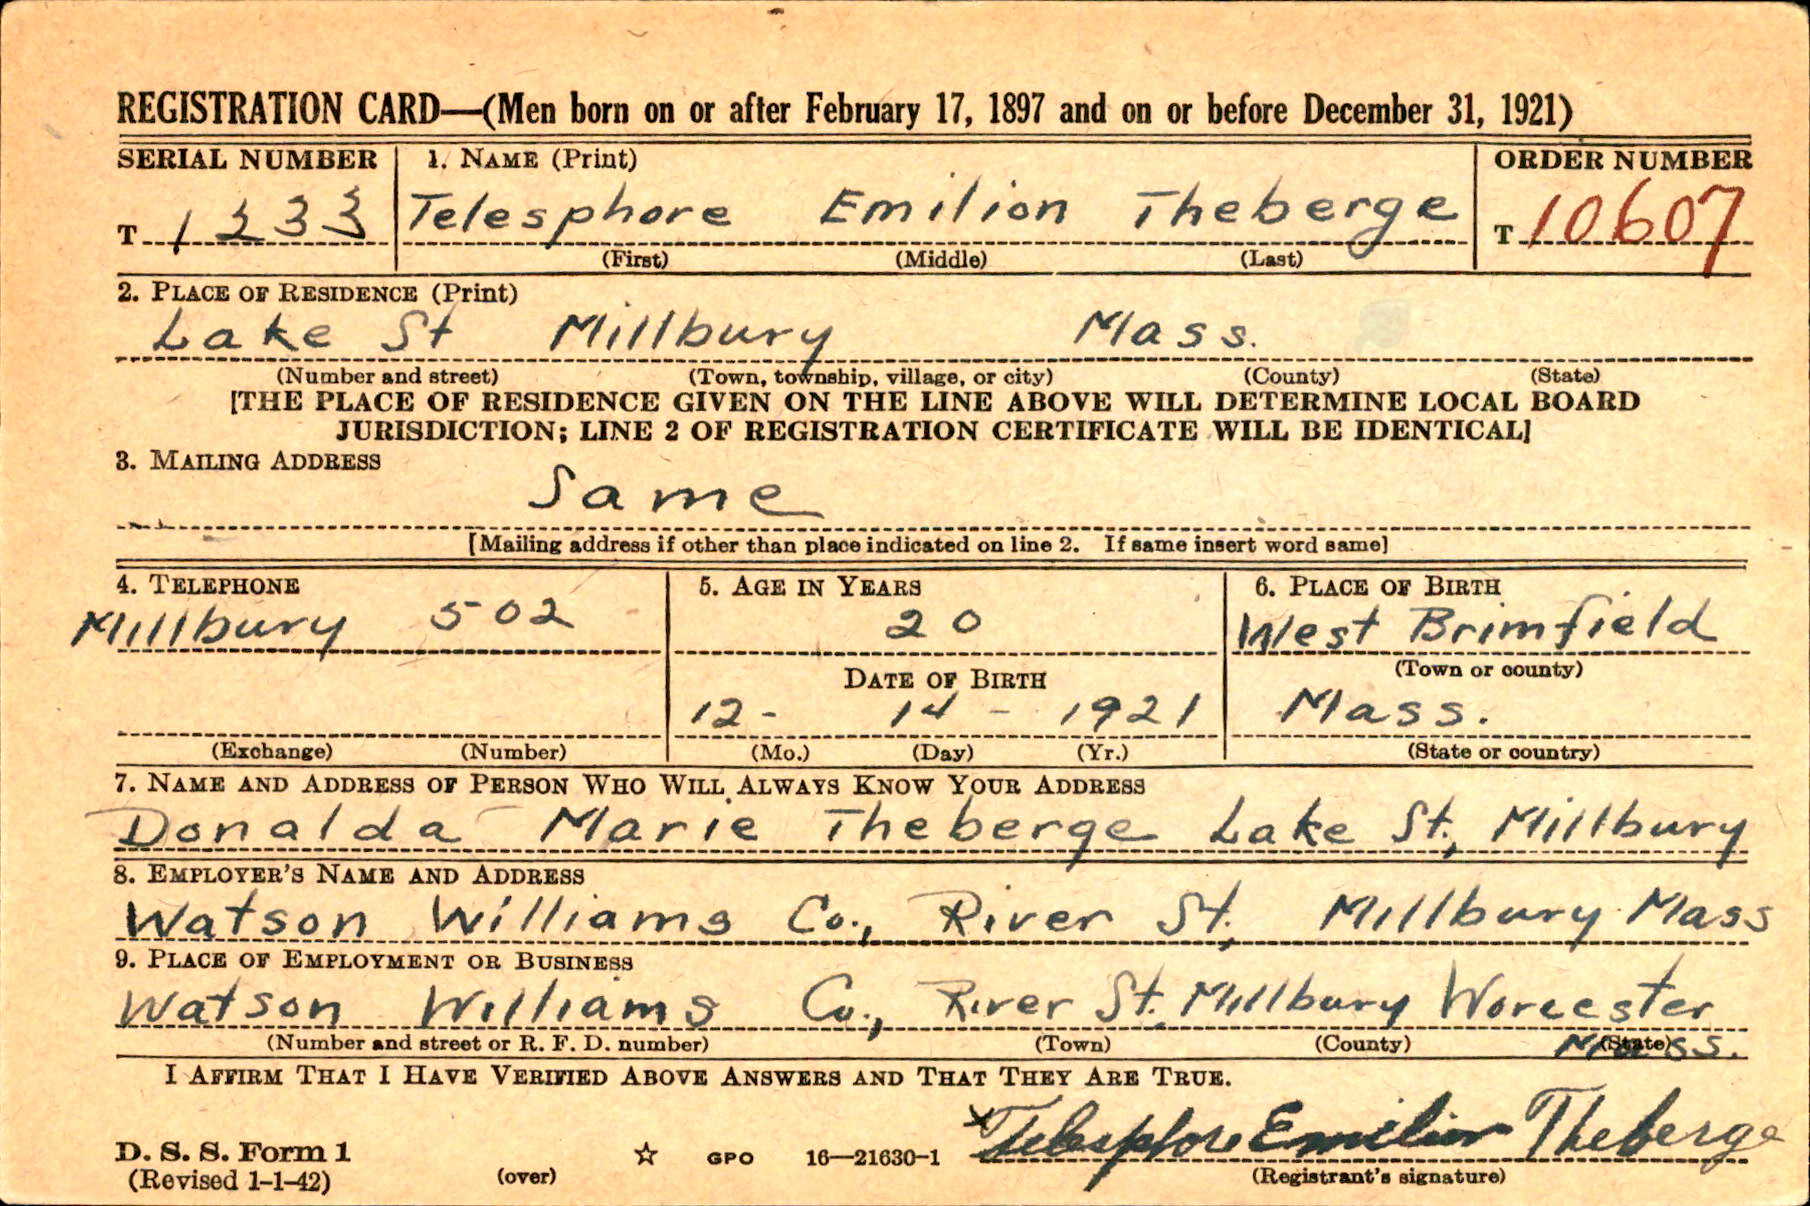 REGISTRATION CARD—(Men born on or after February 17, 1897 and on or before December 31, 1921)
SERIAL NUMBER 1. NAME (Print) ORDER NUMBER
T 1233 Telesphore Emilion Theberge T 10607
(First) (Middle) (Last)
2. PLACE OF RESIDENCE (Print)
Lake St Millbury Mass.
(Number and street) (Town, township, village, or city) (County) (State)
[THE PLACE OF RESIDENCE GIVEN ON THE LINE ABOVE WILL DETERMINE LOCAL BOARD
JURISDICTION; LINE 2 OF REGISTRATION CERTIFICATE WILL BE IDENTICAL]
3. MAILING ADDRESS
Same
[Mailing address if other than place indicated on line 2. If same insert word same]
4. TELEPHONE 5. AGE IN YEARS 6. PLACE OF BIRTH
Millbury 502 20 West Brimfield
(Town or county)
DATE OF BIRTH
12- 14 - 1921 Mass.
(Exchange) (Number) (Mo.) (Day) (Yr.) (State or country)
7. NAME AND ADDRESS OF PERSON WHO WILL ALWAYS KNOW YOUR ADDRESS
Donalda Marie Theberge Lake St., Millbury
8. EMPLOYER'S NAME AND ADDRESS
Watson Williams Co., River St., Millbury Mass
9. PLACE OF EMPLOYMENT OR BUSINESS
Watson Williams Co., River St. Millbury Worcester
(Number and street or R. F. D. number) (Town) (County) (State) Mass.
I AFFIRM THAT I HAVE VERIFIED ABOVE ANSWERS AND THAT THEY ARE TRUE.
x Telesphore Emilion Theberge
D. S. S. Form 1 ☆ GPO 16—21630-1
(Revised 1-1-42) (over) (Registrant's signature)